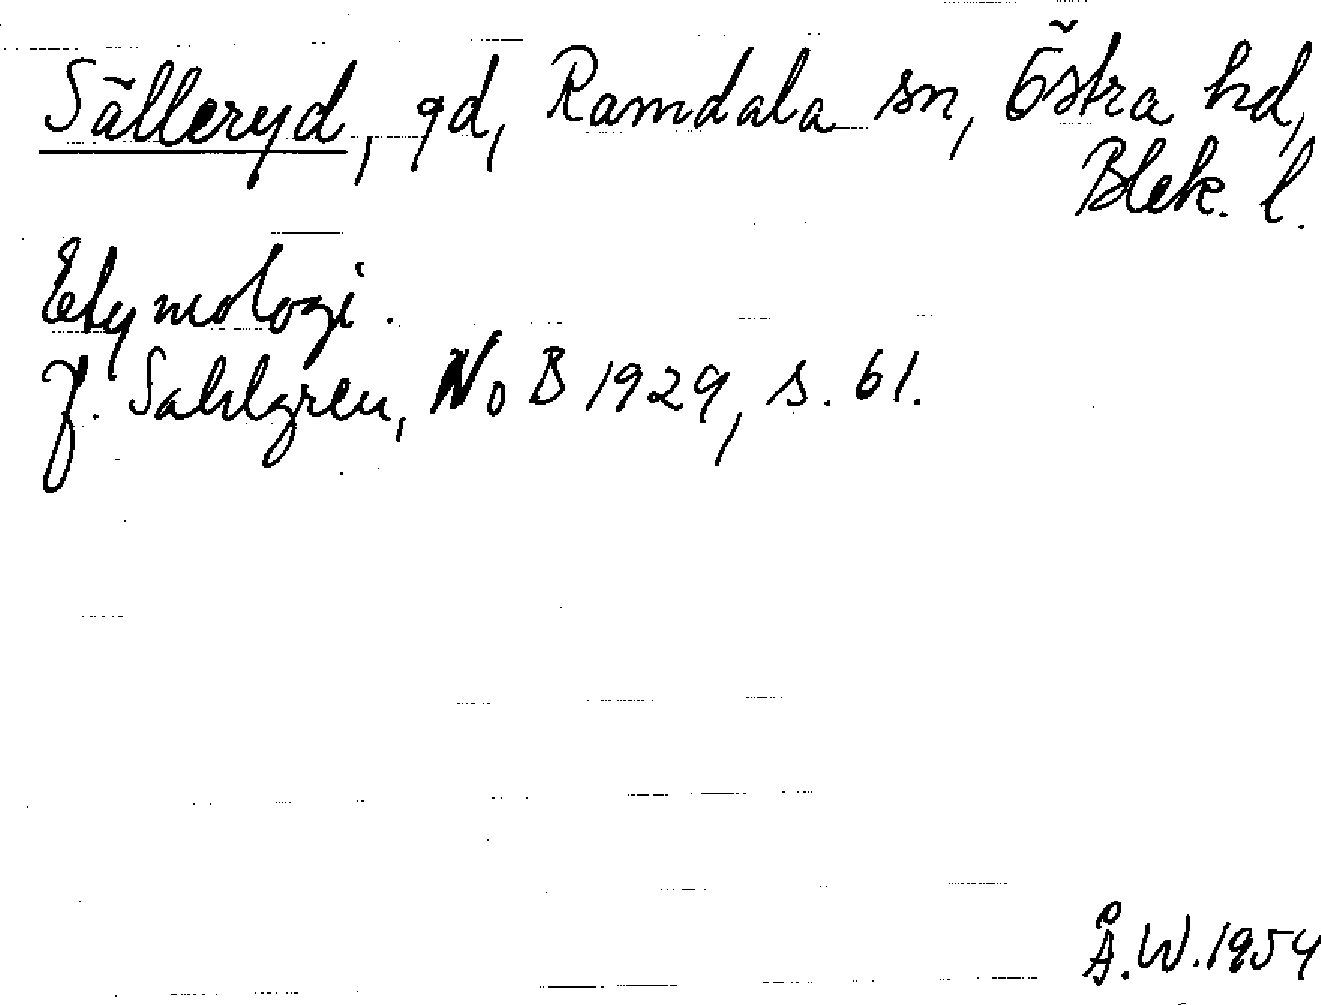 Sälleryd, gd, Ramdala sn, Östra hd,
Blek. l.
Etymologi.
J. Sahlgren, NoB 1929, s. 61.
Å.W. 1954